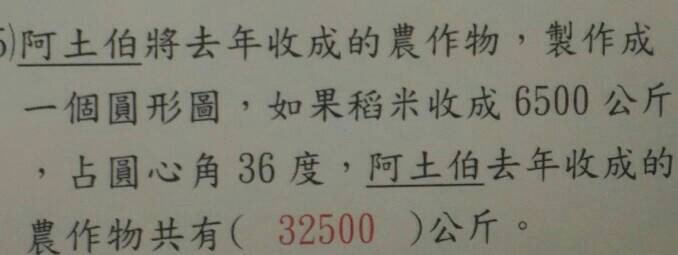 5)阿土伯將去年收成的農作物，製作成
一個圓形圖，如果稻米收成6500公斤
，占圓心角36度，阿土伯去年收成的
農作物共有( 32500 )公斤。